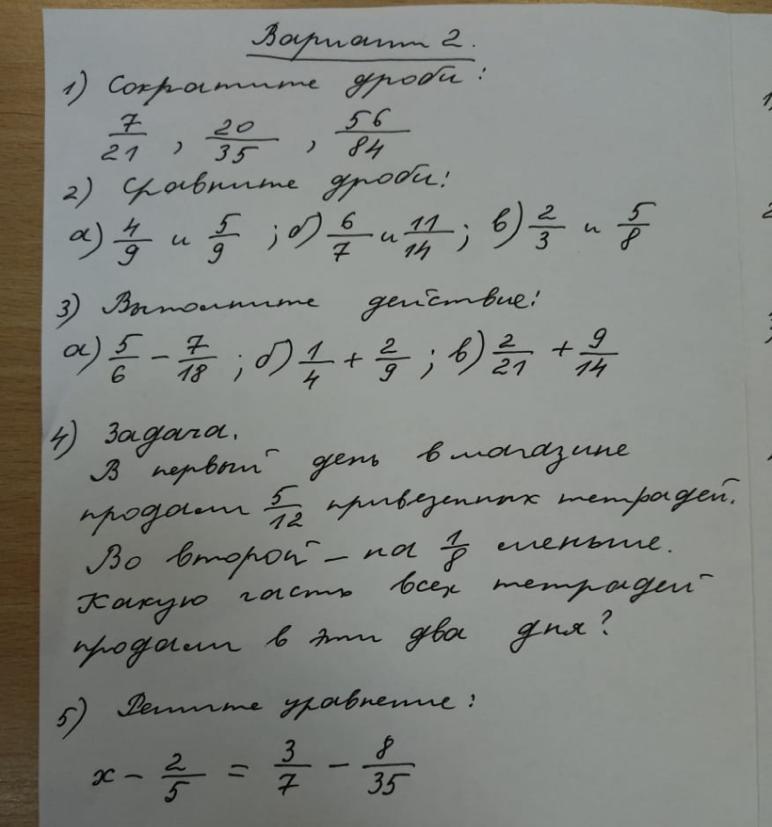 Вариант 2.
1) Сократите дроби:
7/21, 20/35, 56/84
2) Сравните дроби:
а) 4/9 и 5/9; б) 6/7 и 11/14; в) 2/3 и 5/8
3) Выполните действие:
а) 5/6 - 7/18; б) 1/4 + 2/9; в) 2/21 + 9/14
4) Задача.
В первый день в магазине
продали 5/12 привезенных тетрадей.
Во второй - на 1/8 меньше.
Какую часть всех тетрадей
продали в эти два дня?
5) Решите уравнение:
x - 2/5 = 3/7 - 8/35